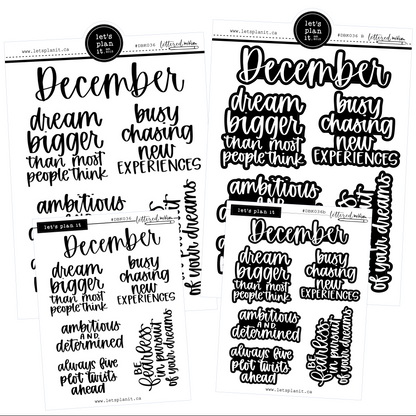 let's
plan
it
www.letsplanit.ca
#DBK036
lettered mom
December
dream
bigger
than most
people think
busy
chasing
new
EXPERIENCES
ambitious
AND
of your dreams
let's
plan
it
www.letsplanit.ca
#DBK036 B
December
dream
bigger
than most
people think
busy
chasing
new
EXPERIENCES
ambitious
in pursuit
of your dreams
let's plan it
#DBK036
December
dream
bigger
than most
people think
busy
chasing
new
EXPERIENCES
ambitious
AND
determined
always five
plot twists
ahead
BE
fearless
in pursuit
of your dreams
letsplanit.ca
let's plan it
#DBK036B
December
dream
bigger
than most
people think
busy
chasing
new
EXPERIENCES
ambitious
AND
determined
always five
plot twists
ahead
BE
fearless
in pursuit
of your dreams
letsplanit.ca